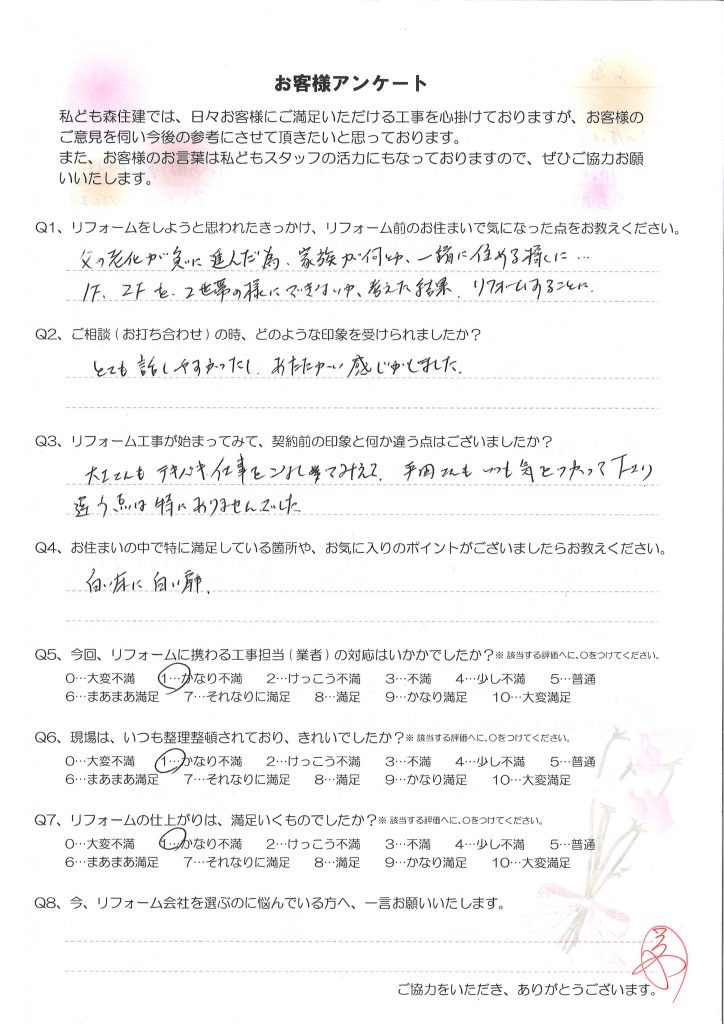 お客様アンケート
私ども森住建では、日々お客様にご満足いただける工事を心掛けておりますが、お客様の
ご意見を伺い今後の参考にさせて頂きたいと思っております。
また、お客様のお言葉は私どもスタッフの活力にもなっておりますので、ぜひご協力お願
いいたします。
Q1、リフォームをしようと思われたきっかけ、リフォーム前のお住まいで気になった点をお教えください。
父の老化が急に進んだ為、家族が何とか、一緒に住める様に…
1F、2Fを、2世帯の様にできないか、考えた結果、リフォームすることに。
Q2、ご相談(お打ち合わせ)の時、どのような印象を受けられましたか?
とても話しやすかったし、あたたかい感じがしました。
Q3、リフォーム工事が始まってみて、契約前の印象と何か違う点はございましたか?
大工さんもテキパキ仕事を みえて、平田さんもいつも気をつかって下さり
違う点は特にありませんでした
Q4、お住まいの中で特に満足している箇所や、お気に入りのポイントがございましたらお教えください。
白い床に白い扉。
Q5、今回、リフォームに携わる工事担当(業者)の対応はいかがでしたか?※該当する評価へに、○をつけてください。
0…大変不満 1…かなり不満 2…けっこう不満 3…不満 4…少し不満 5…普通
6…まあまあ満足 7…それなりに満足 8…満足 9…かなり満足 10…大変満足
Q6、現場は、いつも整理整頓されており、きれいでしたか?※該当する評価へに、○をつけてください。
0…大変不満 1…かなり不満 2…けっこう不満 3…不満 4…少し不満 5…普通
6…まあまあ満足 7…それなりに満足 8…満足 9…かなり満足 10…大変満足
Q7、リフォームの仕上がりは、満足いくものでしたか?※該当する評価へに、○をつけてください。
0…大変不満 1…かなり不満 2…けっこう不満 3…不満 4…少し不満 5…普通
6…まあまあ満足 7…それなりに満足 8…満足 9…かなり満足 10…大変満足
Q8、今、リフォーム会社を選ぶのに悩んでいる方へ、一言お願いいたします。
ご協力をいただき、ありがとうございます。